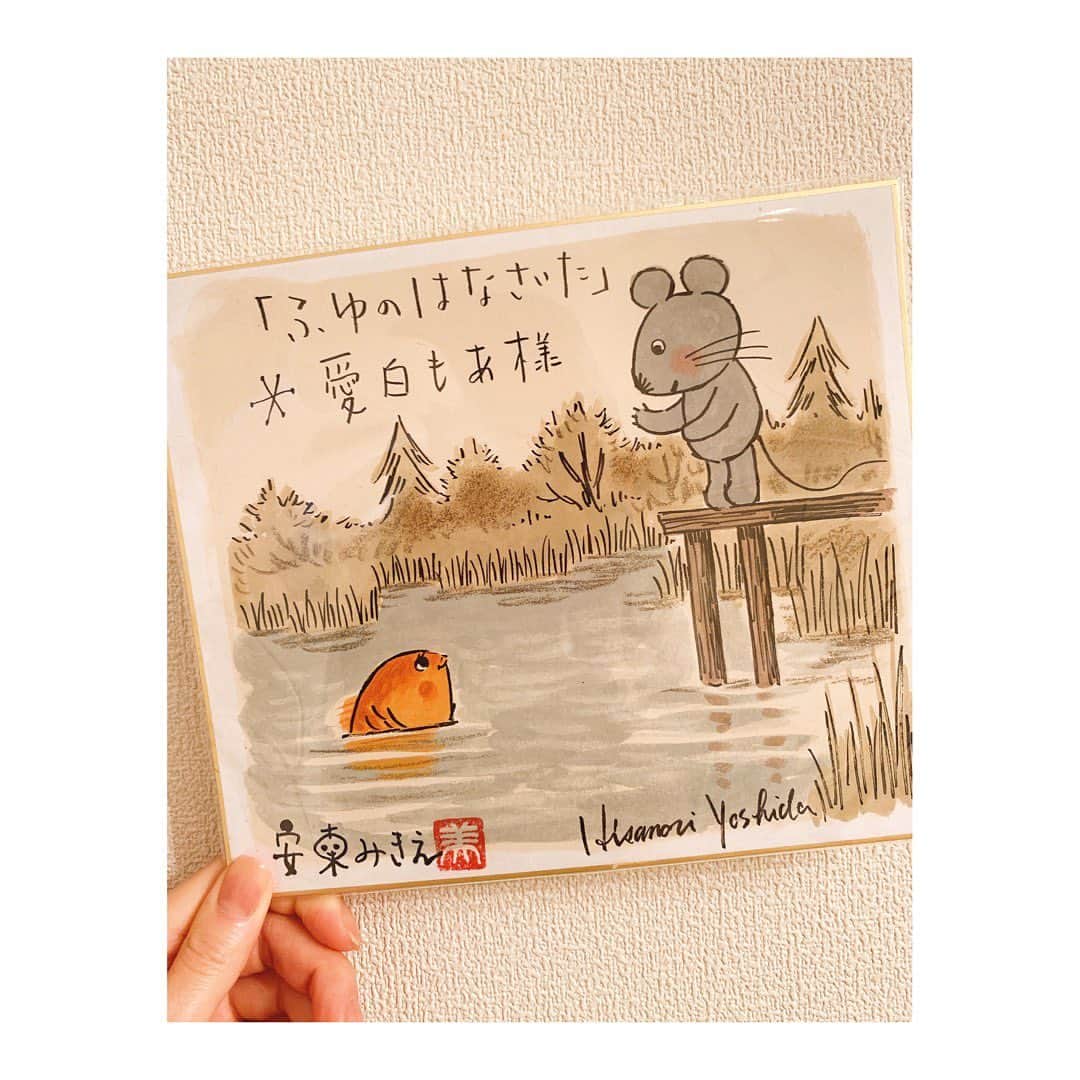 「ふゆのはなさいた」
* 愛白もあ様
安東みきえ 美
Hisanori Yoshida